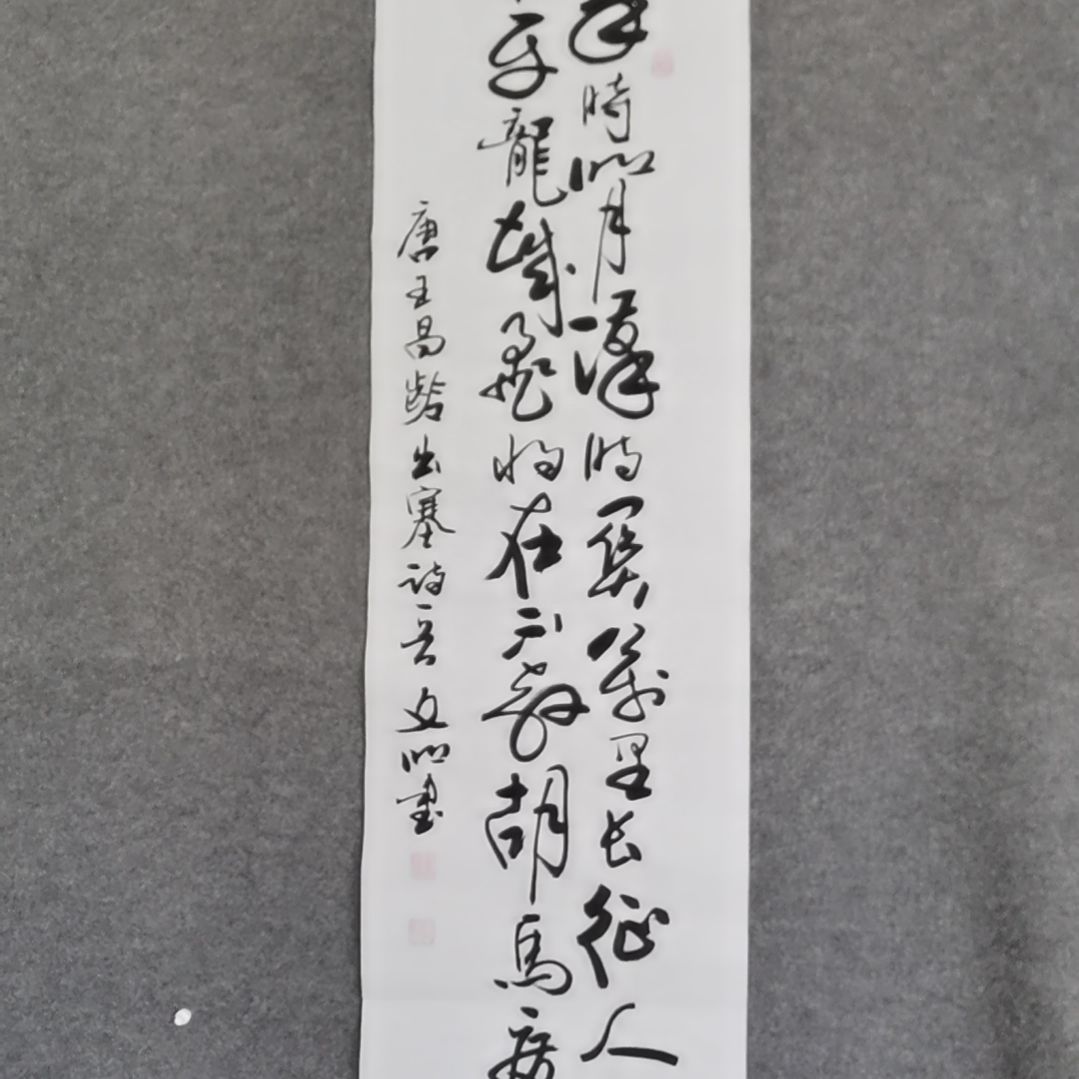 秦時明月漢時關萬里长征人
使龍城飛將在不教胡馬度
唐王昌齡出塞詩一首 文明書